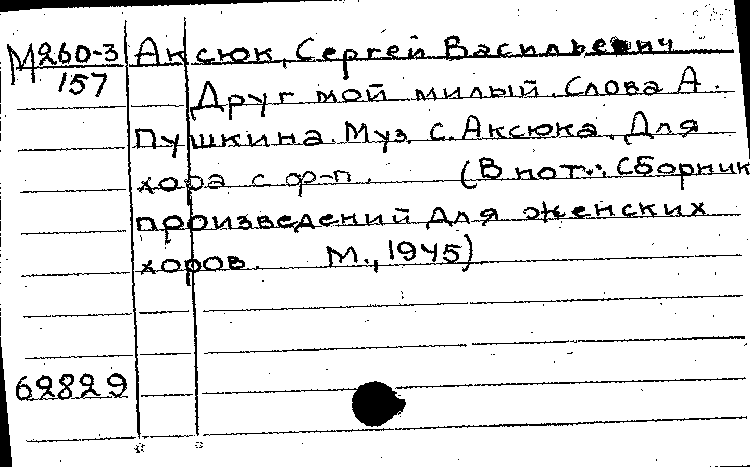 М260-3 Аксюк, Сергей Васильевич
157 Друг мой милый. Слова А.
Пушкина. Муз. С. Аксюка. Для
хора с ф-п. (В нот.: Сборник
произведений для женских
хоров. М., 1945)
62829